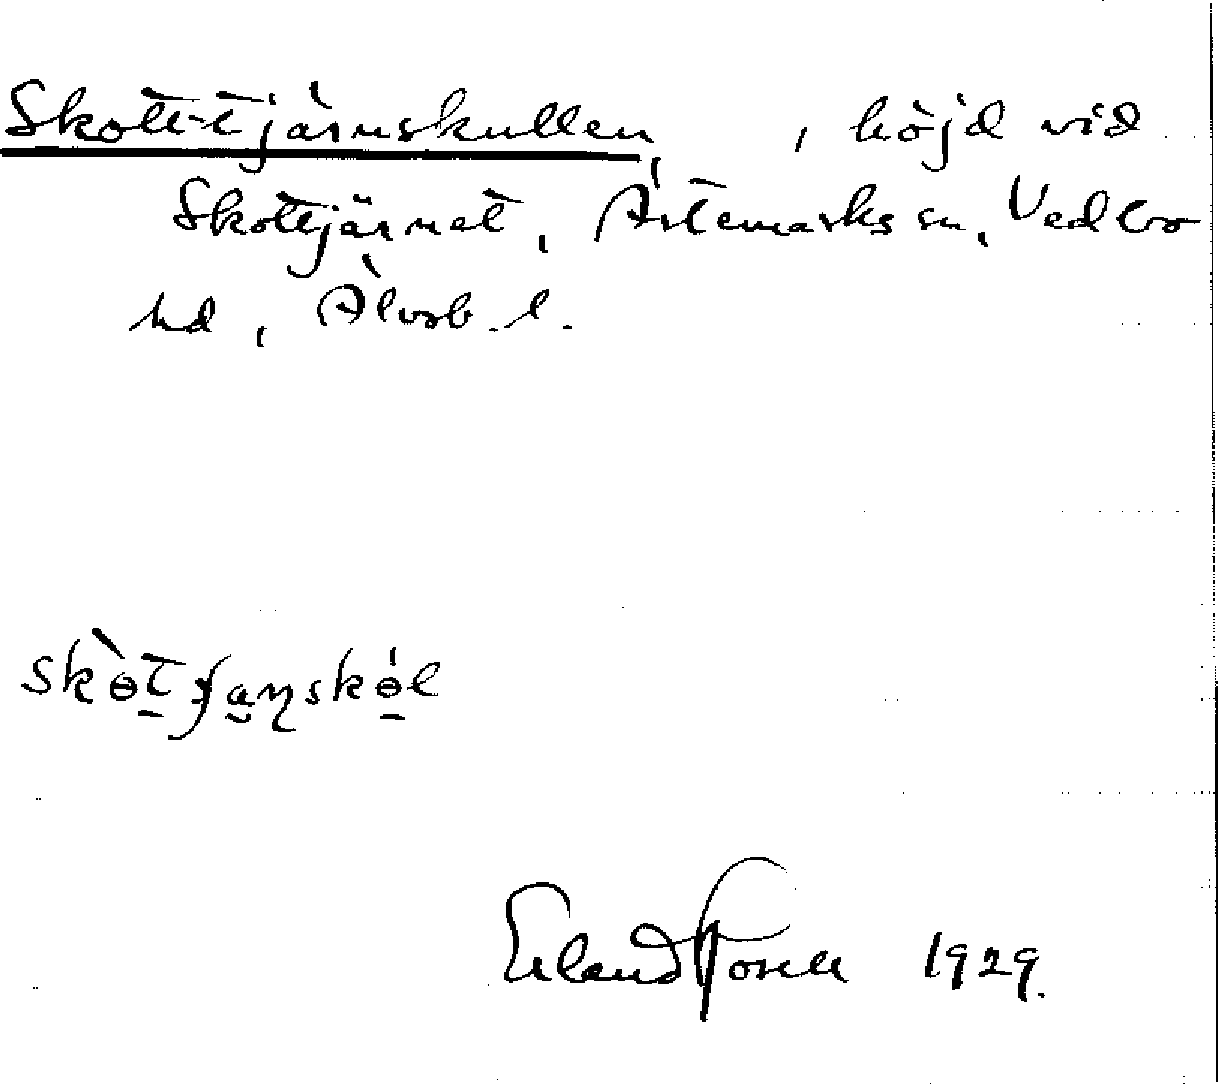 Skott-tjärnskullen, , höjd vid
Skottjärnet, Ärtemarks sn, Vedbo
hd, Älvsb. l.
Erland Rosell 1929.